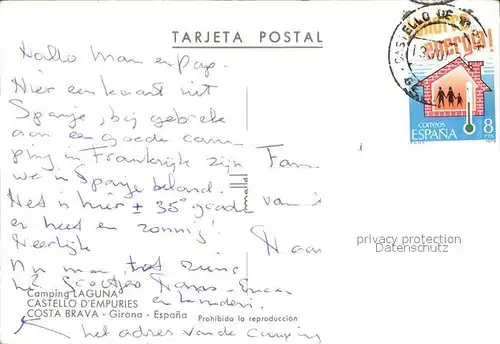 TARJETA POSTAL
Hallo Mam en Pap.
Hier een kaart uit
Spanje, bij gebreke
aan een goede cam-
ping in Frankrijk zijn
we in Spanje beland.
Het is hier ± 35° graden
heet en zonnig!
Heerlijk
Nu mam, tot ziens
het
Fam
van
Naar
Camping LAGUNA
CASTELLO D'EMPURIES
COSTA BRAVA - Girona - España
Prohibida la reproducción
het adres van de camping
CASTELLO DE
energía!
correos
ESPAÑA
8
PTAS
privacy protection
Datenschutz